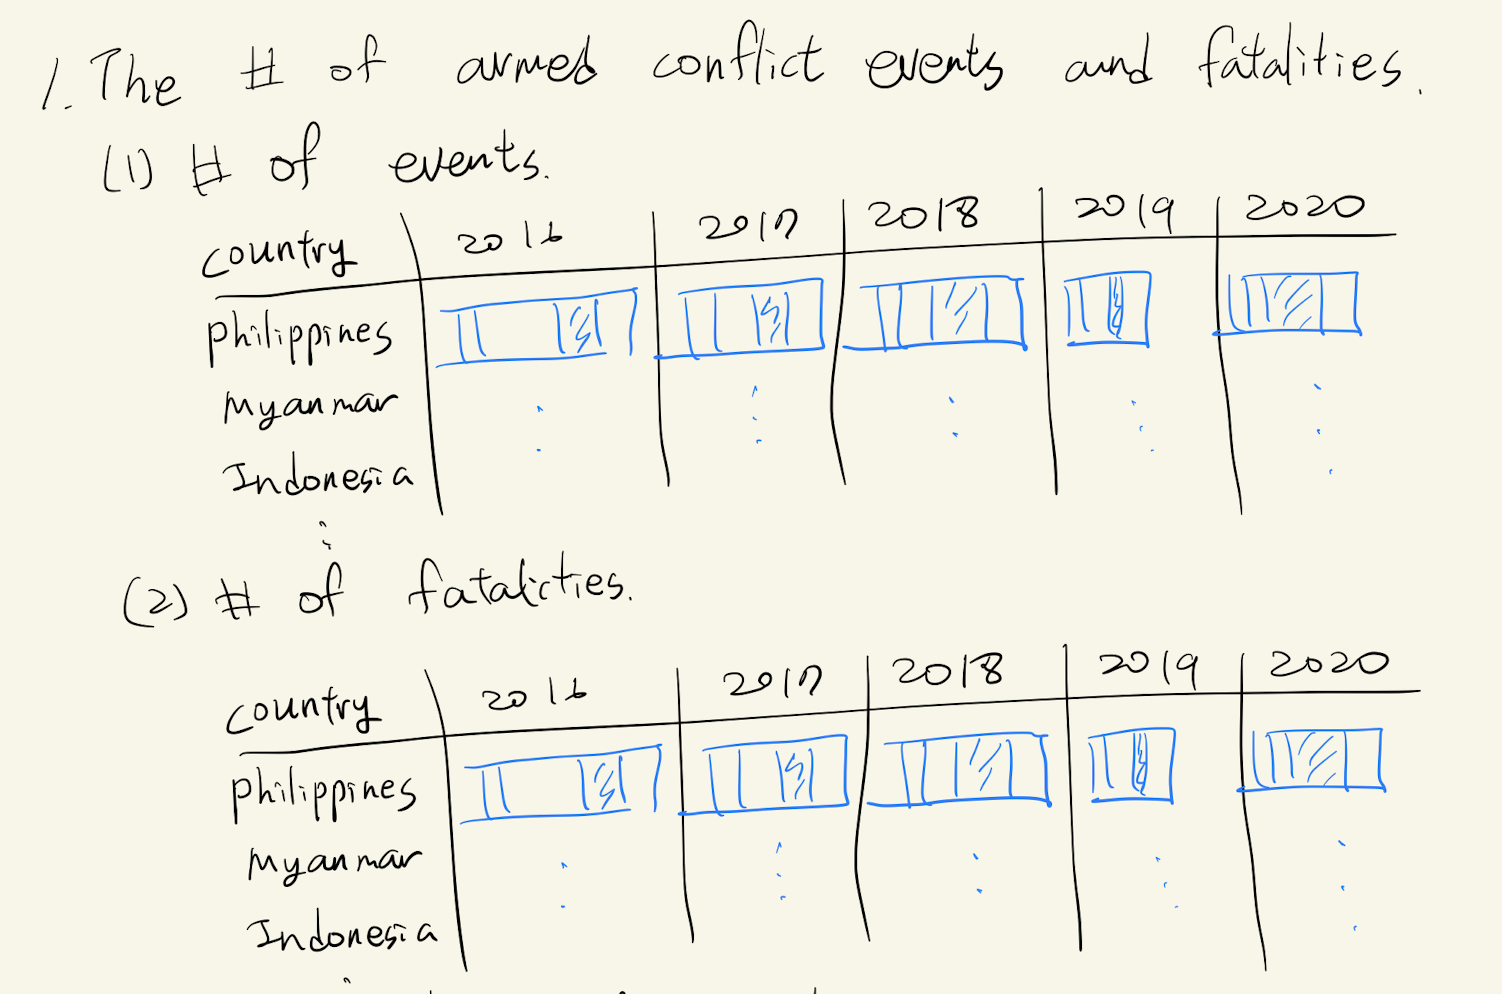 1. The # of armed conflict events and fatalities.
(1) # of events.
country 2016 2017 2018 2019 2020
Philippines
Myanmar
Indonesia
(2) # of fatalicties.
country 2016 2017 2018 2019 2020
Philippines
Myanmar
Indonesia